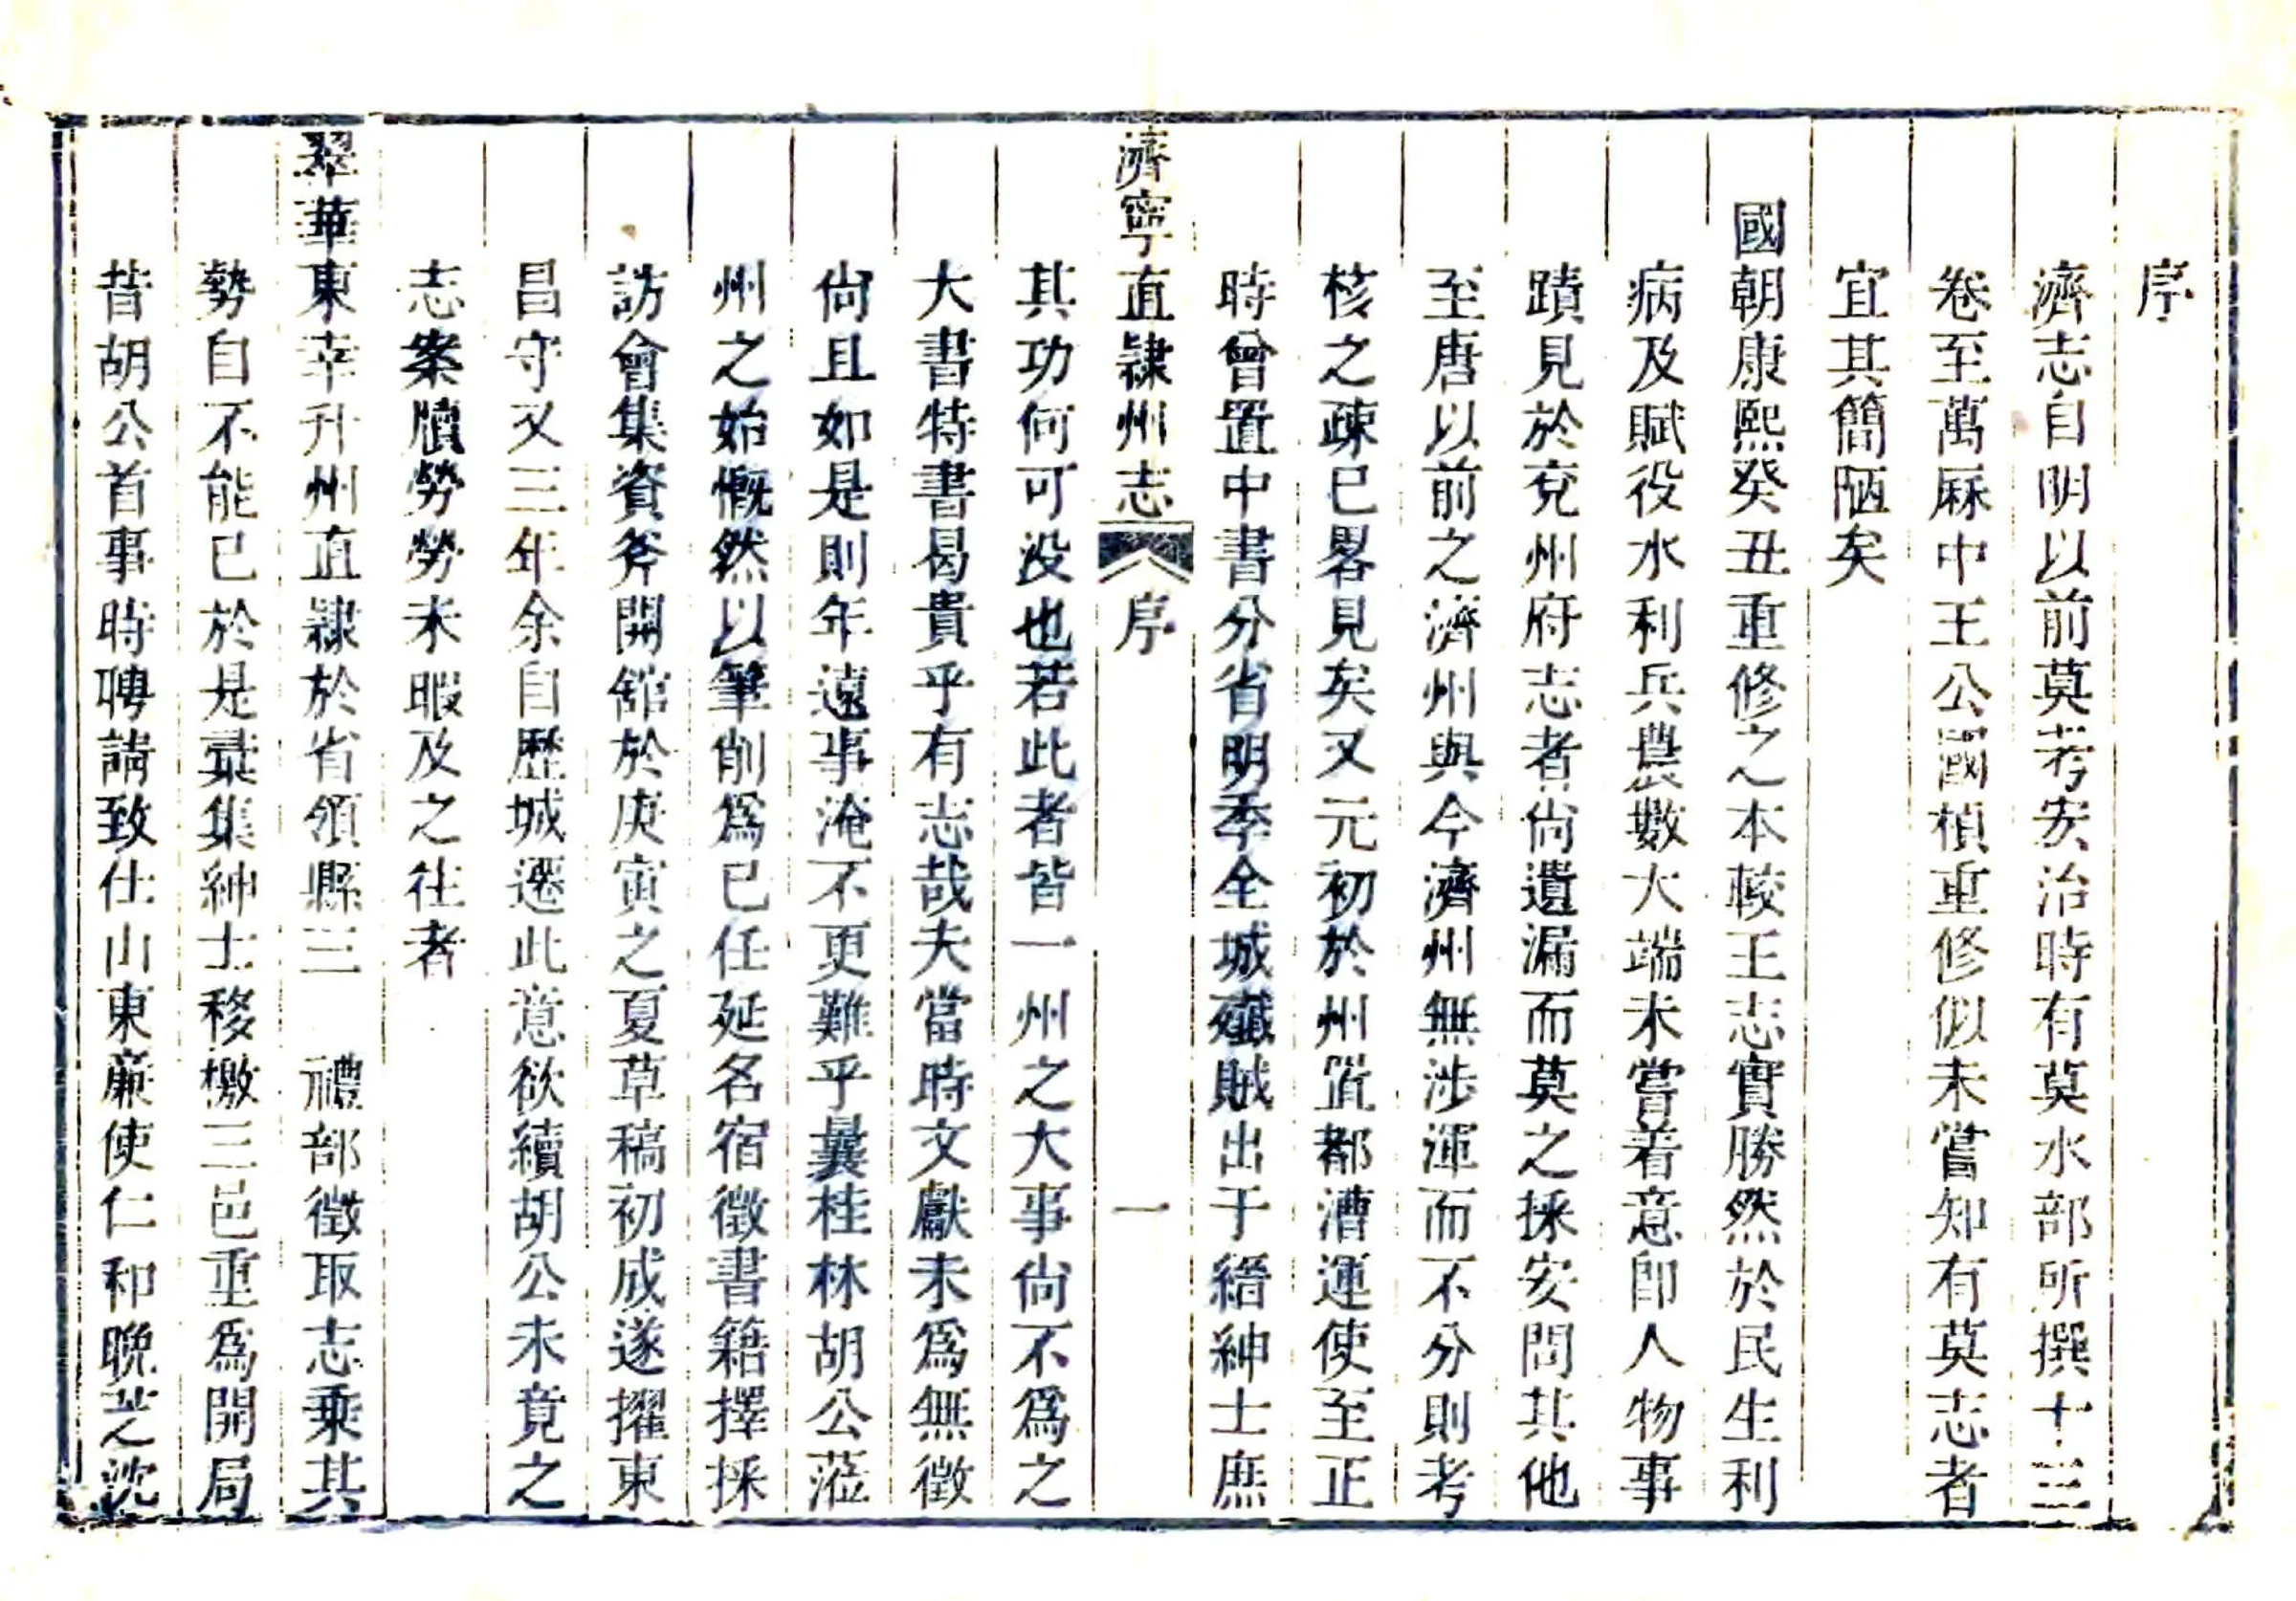 序
濟志自明以前莫考矣治時有莫水部所撰十三
卷至萬厤中王公國楨重修似未嘗知有莫志者
宜其簡陋矣
國朝康熙癸丑重修之本較王志實勝然於民生利
病及賦役水利兵農數大端未嘗着意卽人物事
蹟見於兗州府志者尙遺漏而莫之採安問其他
至唐以前之濟州與今濟州無涉渾而不分則考
核之疎已畧見矣又元初於州置都漕運使至正
時曾置中書分省明季全城殲賊出于縉紳士庶
濟寧直隸州志 序 一
其功何可没也若此者皆一州之大事尙不爲之
大書特書曷貴乎有志哉夫當時文獻未爲無徵
尙且如是則年遠事淹不更難乎曩桂林胡公蒞
州之始慨然以筆削爲已任延名宿徵書籍擇採
訪會集資斧開舘於庚寅之夏草稿初成遂擢東
昌守又三年余自歷城遷此意欲續胡公未竟之
志案牘勞勞未暇及之往者
翠華東幸升州直隸於省領縣三 禮部徵取志乘其
勢自不能已於是彙集紳士移檄三邑重爲開局
昔胡公首事時聘請致仕山東廉使仁和晚芝沈